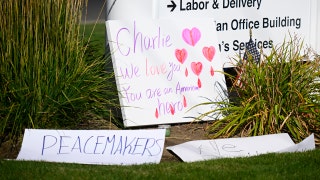 Labor & Delivery
ian Office Building
n's Services
Charlie
We love you
You are an American
hero!
PEACEMAKERS